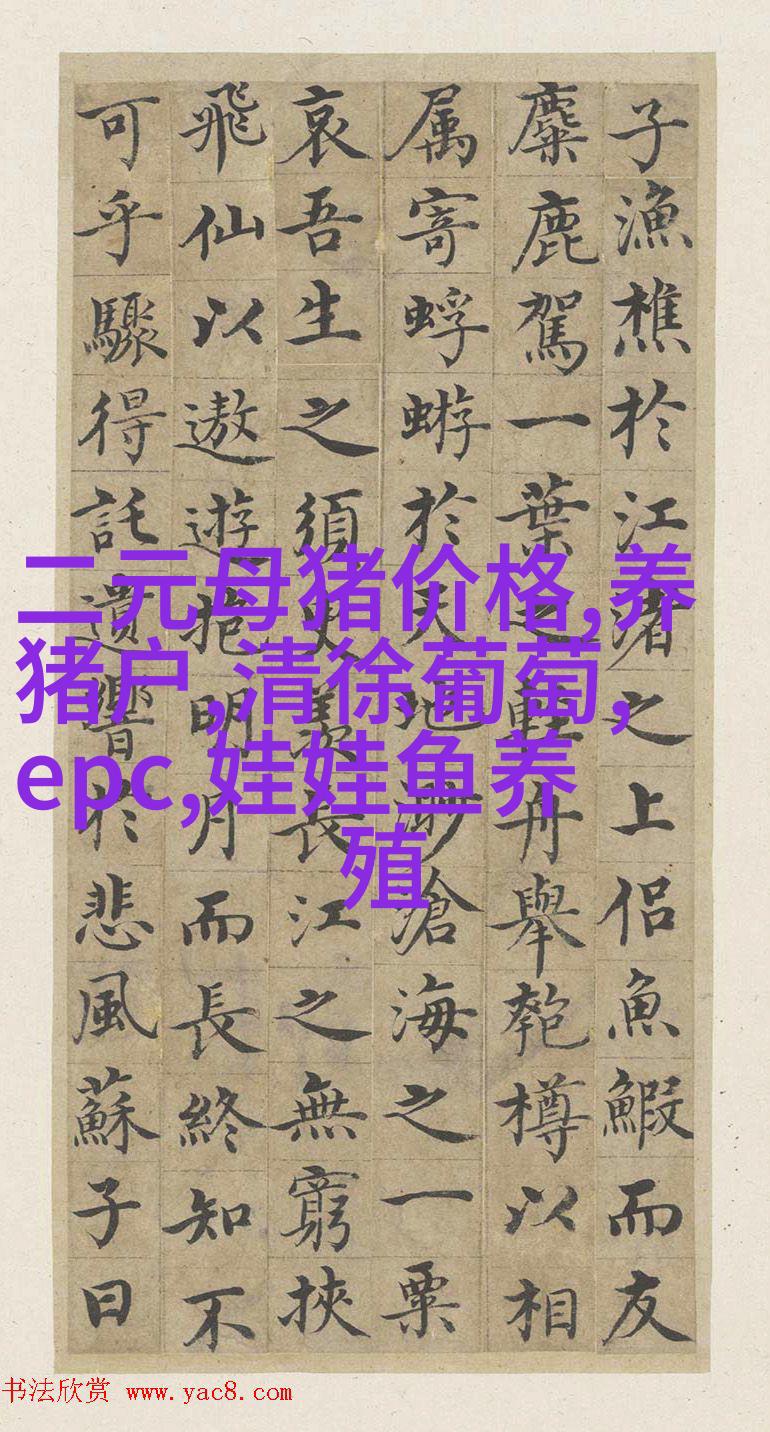 子漁樵於江渚之上侶魚鰕而友
麋鹿駕一葉之輕舟舉匏樽以相
属寄蜉蝣於天地渺滄海之一粟
哀吾生之須臾羨長江之無窮挾
飛仙以遨遊抱明月而長終知不
可乎驟得託遺響於悲風蘇子曰
二元母猪价格,养
猪户,清徐葡萄,
epc,娃娃鱼养
殖
书法欣赏 www.yac8.com